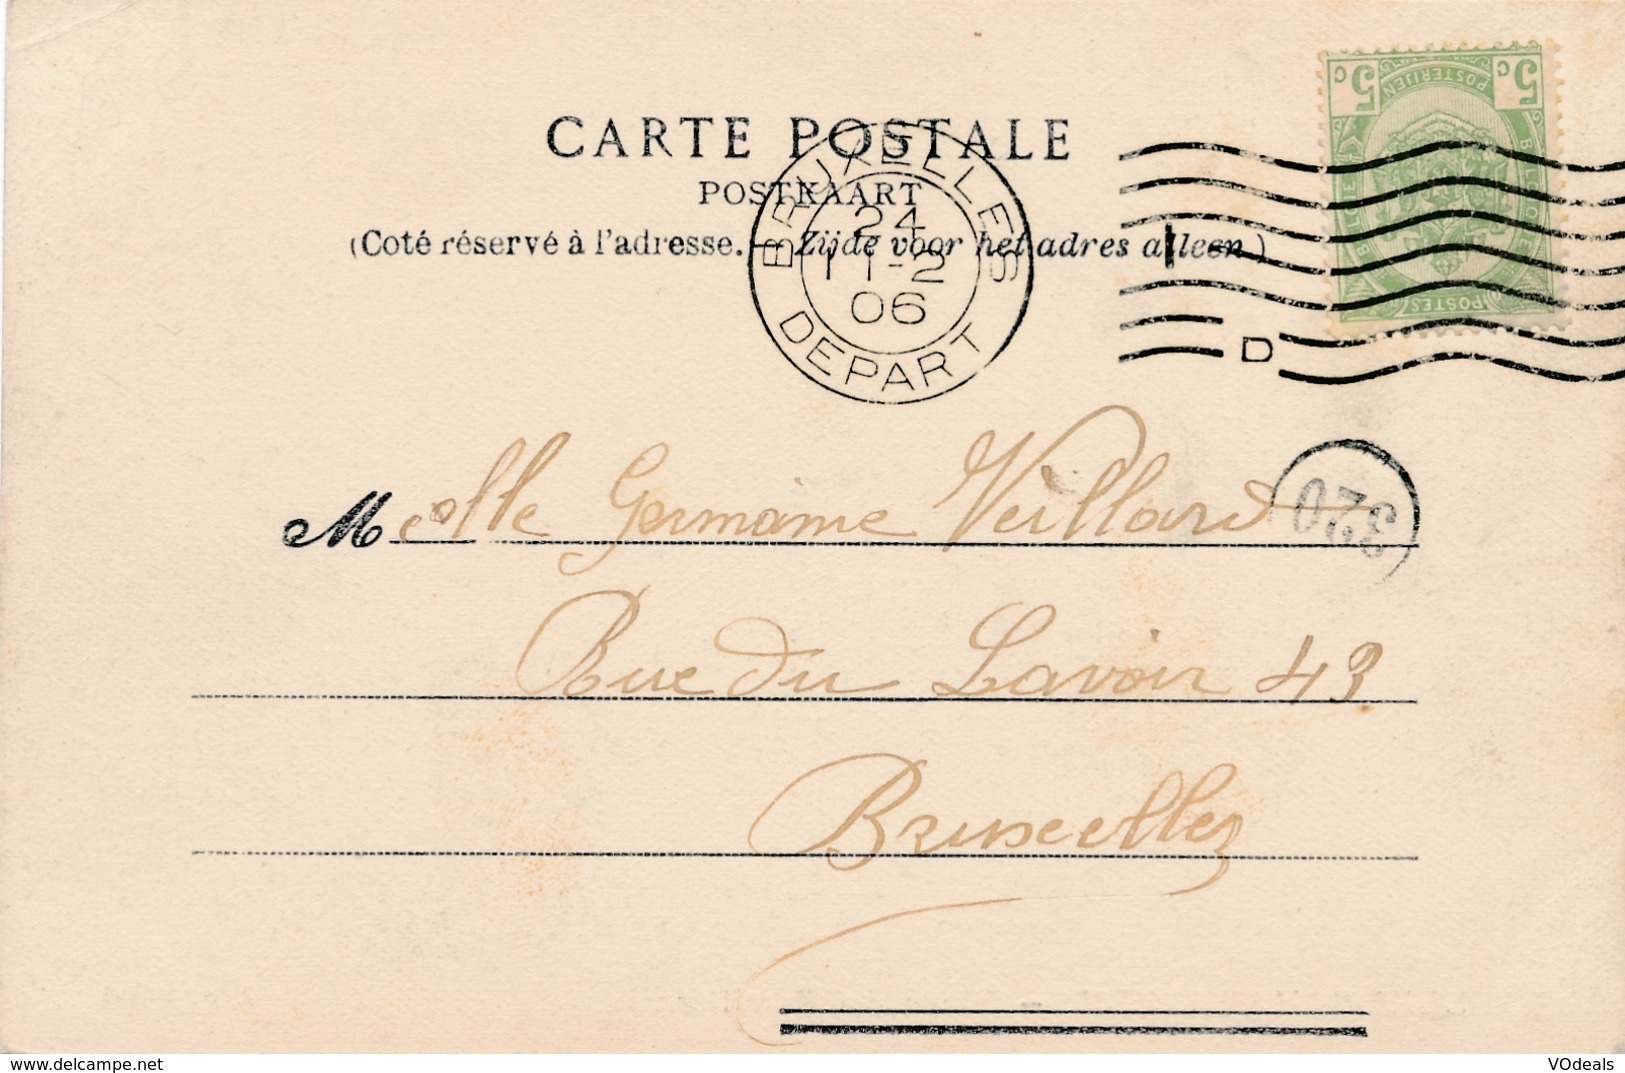 CARTE POSTALE
POSTKAART
(Coté réservé à l'adresse. — Zijde voor het adres alleen)
BRUXELLES
24
11-2
06
DEPART
D
5c 5c
POSTERIJEN
BELGIQUE BELGIE
POSTES
320
Melle Germaine Veillard
Rue du Lavoir 43
Bruxelles
www.delcampe.net
VOdeals